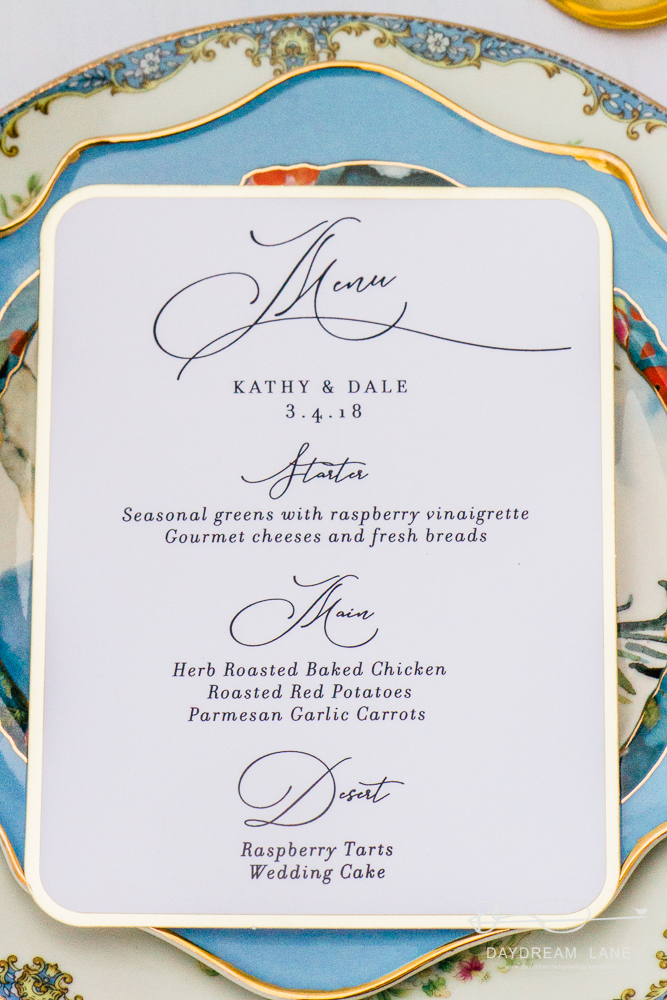 Menu
KATHY & DALE
3.4.18
Starter
Seasonal greens with raspberry vinaigrette
Gourmet cheeses and fresh breads
Main
Herb Roasted Baked Chicken
Roasted Red Potatoes
Parmesan Garlic Carrots
Desert
Raspberry Tarts
Wedding Cake
DAYDREAM LANE